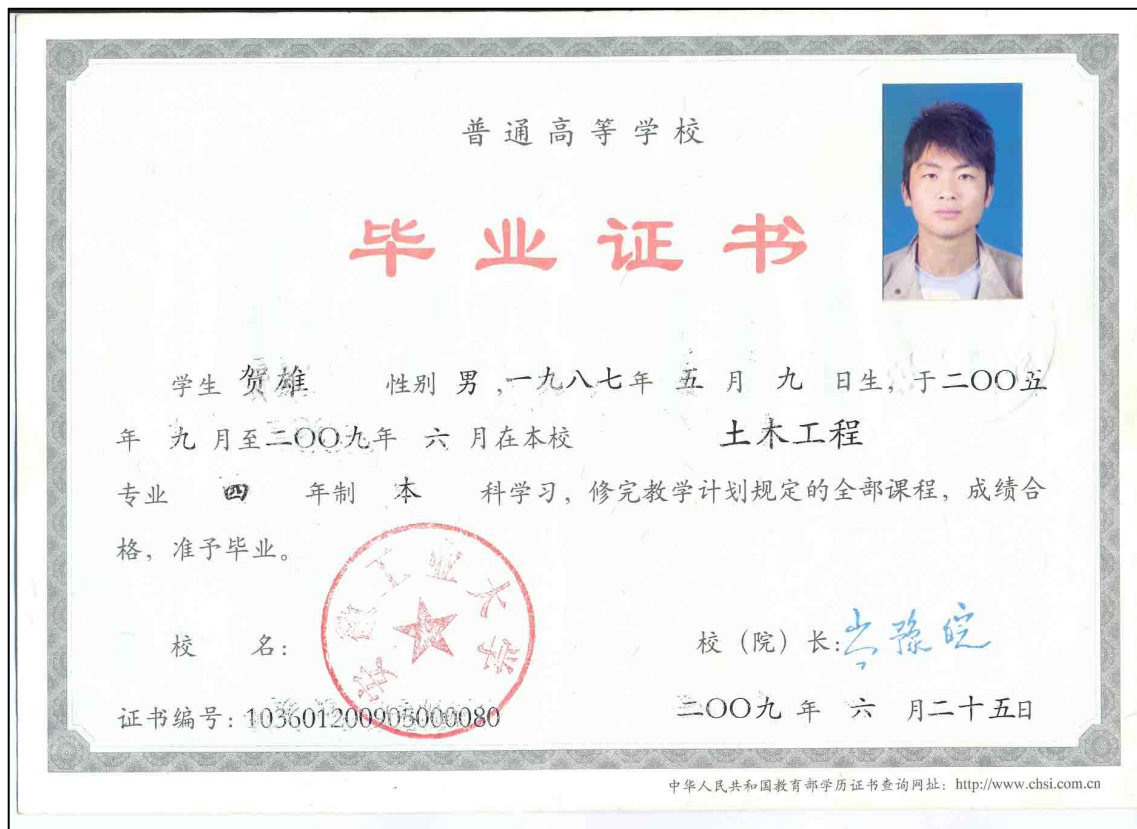 普通高等学校
毕业证书
学生 贺雄 性别 男 ,一九八七年 五 月 九 日生, 于二〇〇五
年 九 月至二〇〇九年 六 月在本校 土木工程
专业 四 年制 本 科学习, 修完教学计划规定的全部课程, 成绩合
格, 准予毕业。
安徽工业大学
校 名: 校（院）长: 岑豫皖
证书编号: 103601200905000080 二〇〇九 年 六 月二十五日
中华人民共和国教育部学历证书查询网址: http://www.chsi.com.cn